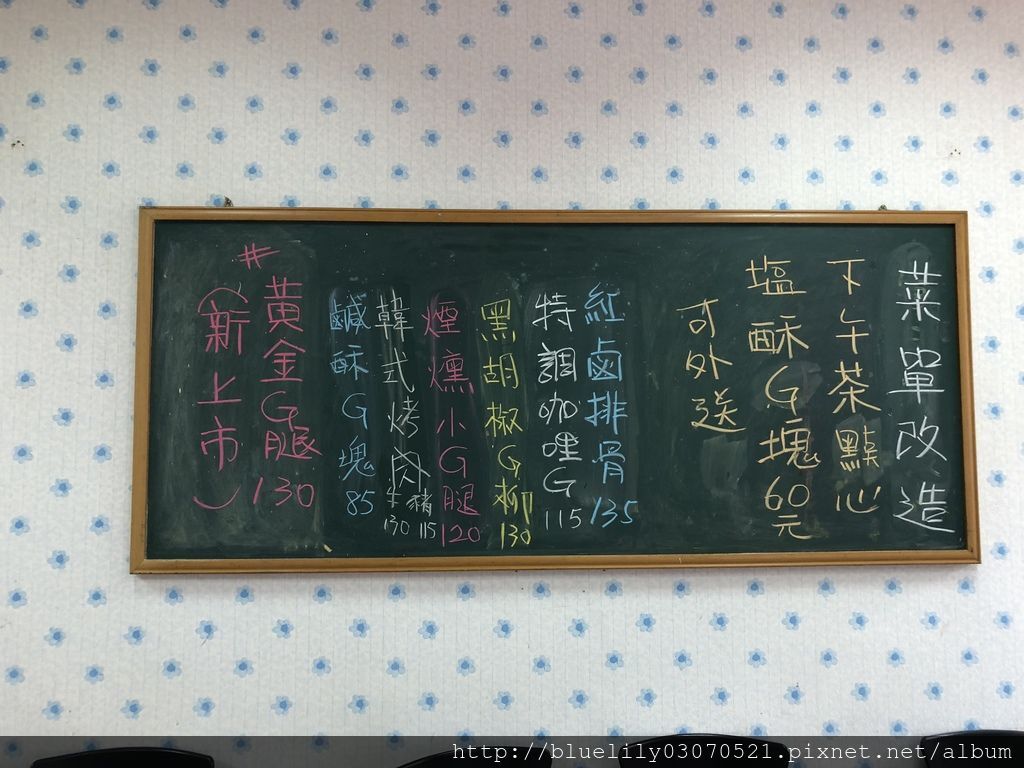 菜單改造
下午茶點心
塩酥G塊60元
可外送
紅鹵排骨135
特調咖哩G115
黑胡椒G柳130
煙燻小G腿120
韓式烤肉 豬115 牛130
鹹酥G塊85
#黃金G腿130
(新上市)
http://bluelily03070521.pixnet.net/album